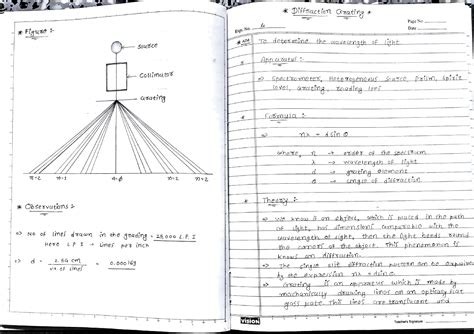 * Figure :
Source
Collimator
Grating
n=2 n=1 n=0 n=1 n=2
* Observations :
⇒ No of lines drawn in the grating = 15,000 L.P.I
Here L.P.I = Lines per inch
⇒ d = 2.54 cm / no of lines = 0.000169
* Diffraction Grating *
Expt. No.
Page No.
Date
* Aim To determine the wavelength of light
* Apparatus :
⇒ Spectrometer, Source, Prism, Spirit
level, Grating, reading lens
* Formula :
⇒ nλ = d sinθ
where, n → order of the spectrum
λ → wavelength of light
d → grating element
θ → angle of diffraction
* Theory :
⇒ We know if an object, which is placed in the path
of light, has dimensions comparable with the
wavelength of light, then the light bends round
the corners of the object. This phenomenon is
known as diffraction.
⇒ The single slit diffraction pattern can be explained
by the expression nλ = d sinθ.
Grating is an apparatus which is made by
mechanically drawing lines on an optically flat
glass plate. This lines are translucent and
VISION
Teacher's Signature